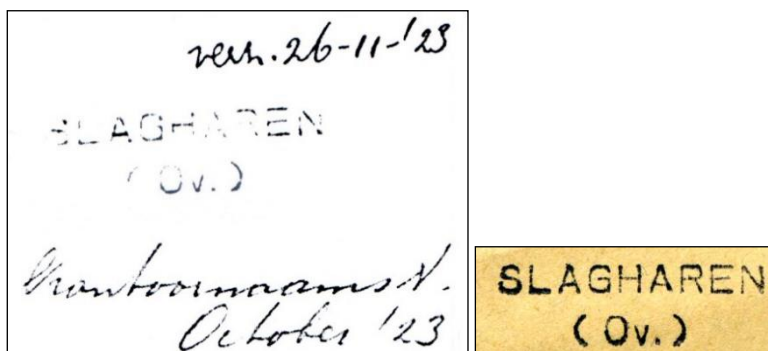 verz. 26-11-'23
SLAGHAREN
(Ov.)
Kantoornaamst.
October '23
SLAGHAREN
(Ov.)